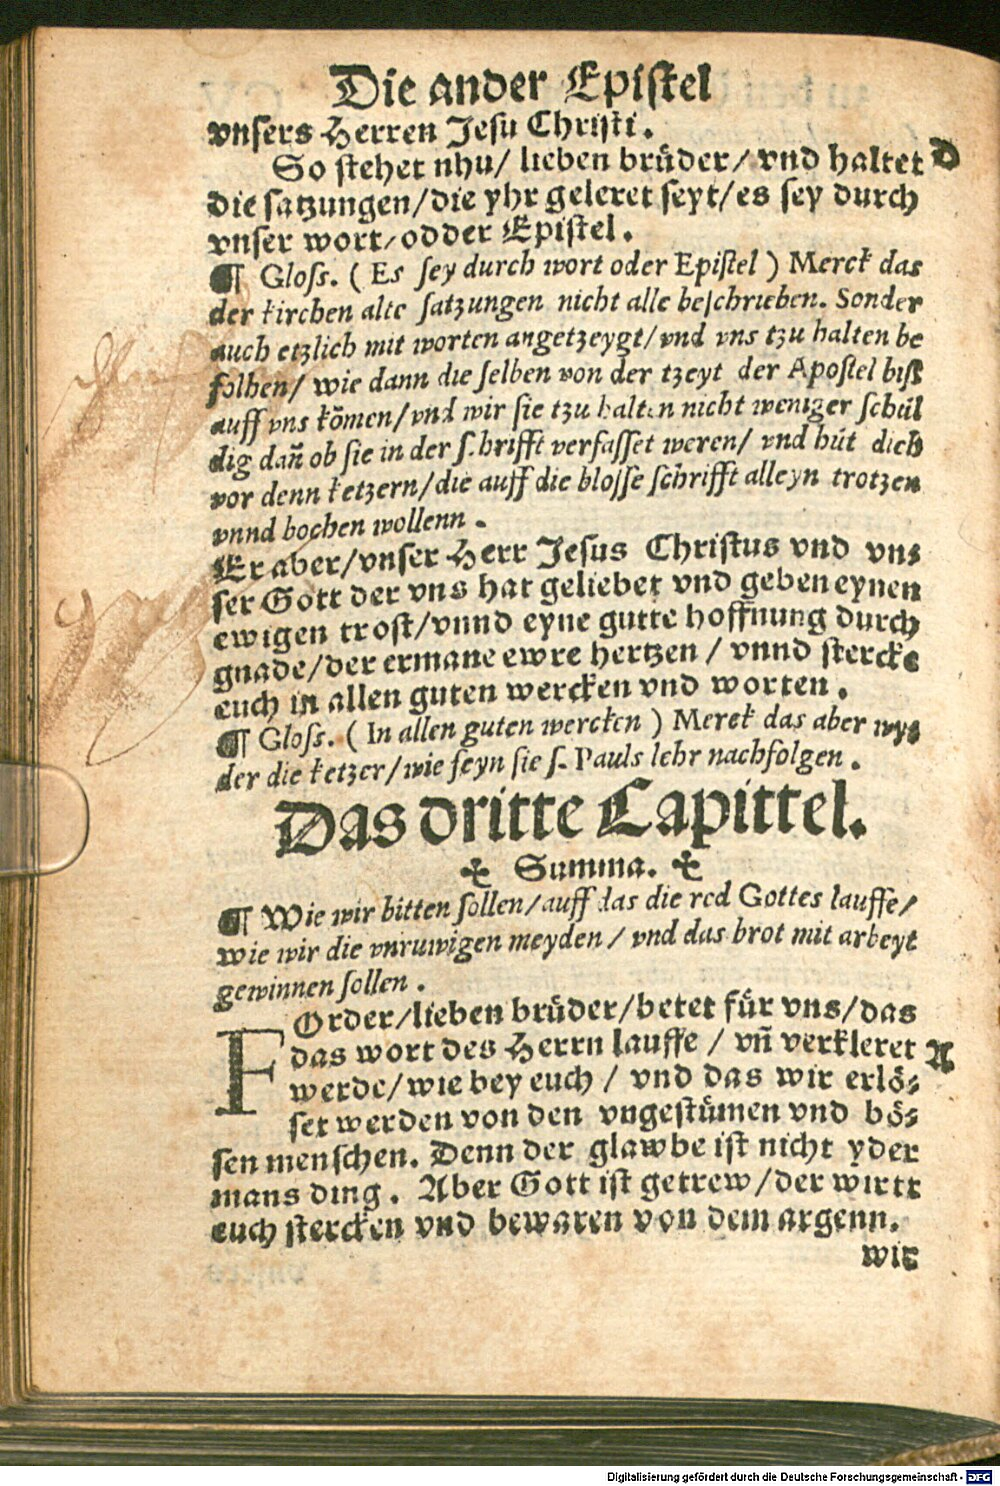 Die ander Epistel
vnsers Herren Jesu Christi.
So stehet nhu/ lieben brüder/ vnd haltet D
die satzungen/die yhr geleret seyt/es sey durch
vnser wort/odder Epistel.
¶ Gloss. ( Es sey durch wort oder Epistel ) Merck das
der kirchen alte satzungen nicht alle beschrieben. Sonder
auch etzlich mit worten angetzeygt/vnd vns tzu halten be
folhen/ wie dann die selben von der tzeyt der Apostel biß
auff vns kōmen/vnd wir sie tzu halten nicht weniger schül
dig dañ ob sie in der schrifft verfasset weren/ vnd hüt dich
vor denn ketzern/die auff die blosse schrifft alleyn trotzen
vnnd bochen wollenn .
Er aber/vnser Herr Jesus Christus vnd vn⸗
ser Gott der vns hat geliebet vnd geben eynen
ewigen trost/vnnd eyne gutte hoffnung durch
gnade/der ermane ewre hertzen / vnnd stercke
euch in allen guten wercken vnd worten .
¶ Gloss. ( In allen guten wercken ) Merck das aber wyd
der die ketzer/wie seyn sie s. Pauls lehr nachfolgen .
Das dritte Capittel.
✣ Summa. ✣
¶ Wie wir bitten sollen/auff das die red Gottes lauffe/
wie wir die vnruwigen meyden / vnd das brot mit arbeyt
gewinnen sollen .
FOrder/lieben brüder/betet für vns/das
das wort des Herrn lauffe / vñ verkleret A
werde/wie bey euch / vnd das wir erlö⸗
set werden von den vngestümen vnd bö⸗
sen menschen. Denn der glawbe ist nicht yder
mans ding . Aber Gott ist getrew/der wirtt
euch stercken vnd bewaren von dem argenn.
wir
Digitalisierung gefördert durch die Deutsche Forschungsgemeinschaft - DFG